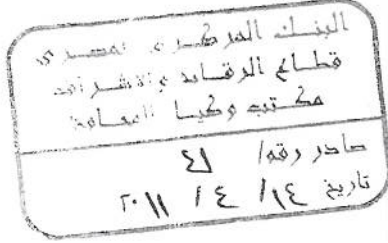 البنك المركزى المصرى
قطاع الرقابه والاشراف
مكتب وكيل المحافظ
صادر رقم / ٤١
تاريخ ١٤ / ٤ / ٢٠١١